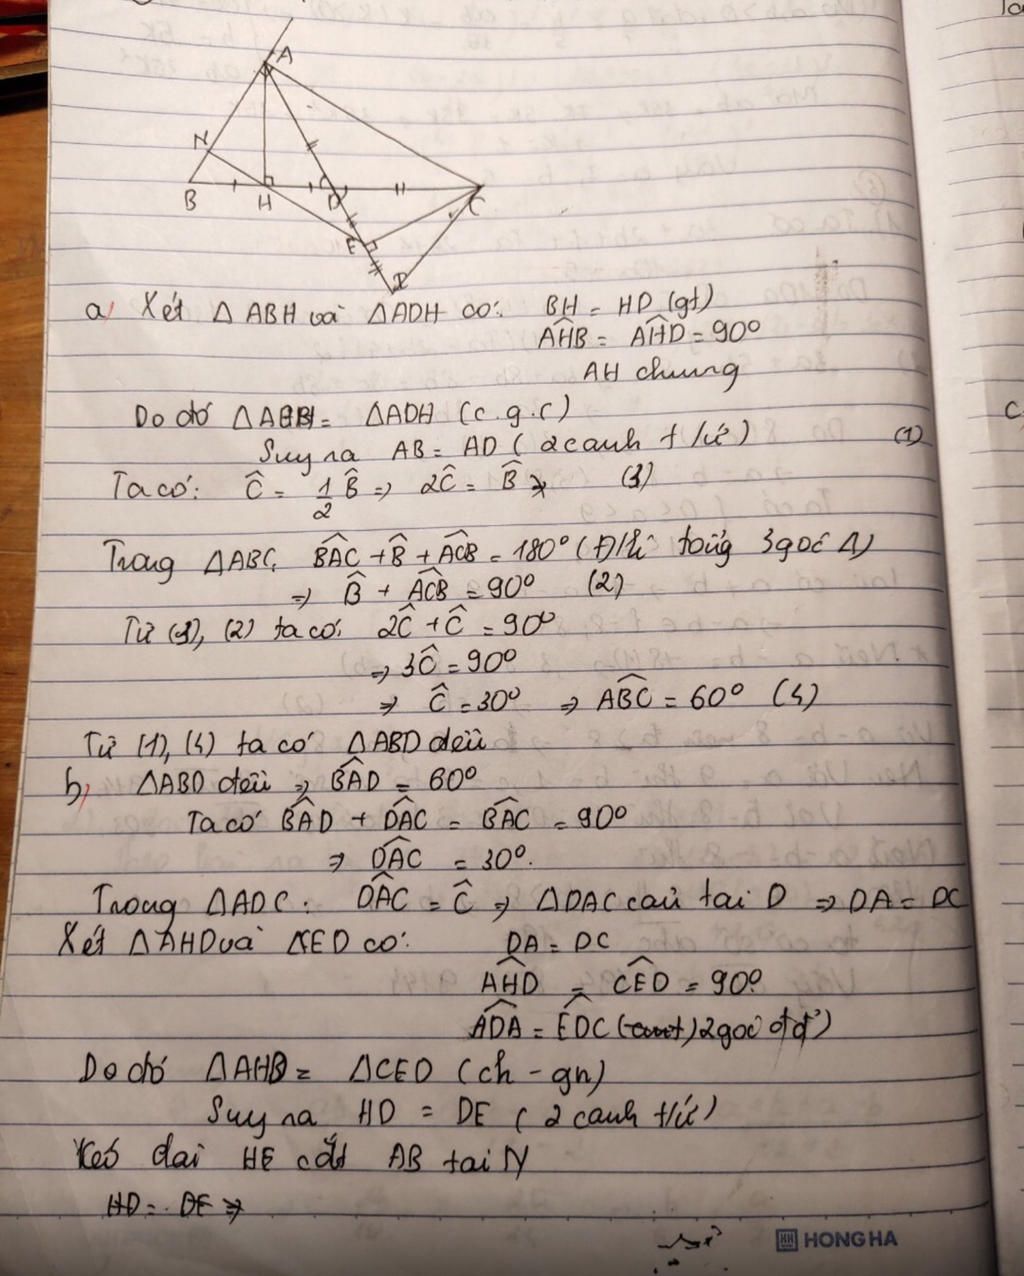 A
N
B
H
D
C
E
I
a, Xét △ABH và △ADH có: BH = HD (gt)
AHB = AHD = 90°
AH chung
Do đó △ABH = △ADH (c.g.c)
Suy ra AB = AD (2 cạnh t/ứ) (1)
Ta có: Ĉ = 1/2 B̂ ⇒ 2Ĉ = B̂ (3)
Trong △ABC, BAC + B̂ + ACB = 180° (Đ/lí tổng 3 góc △)
⇒ B̂ + ACB = 90° (2)
Từ (3), (2) ta có: 2Ĉ + Ĉ = 90°
⇒ 3Ĉ = 90°
⇒ Ĉ = 30° ⇒ ABC = 60° (4)
Từ (1), (4) ta có △ABD đều
b, △ABD đều ⇒ BAD = 60°
Ta có BAD + DAC = BAC = 90°
⇒ DAC = 30°.
Trong △ADC: DAC = Ĉ ⇒ △DAC cân tại D ⇒ DA = DC
Xét △AHD và △CED có: DA = DC
AHD = CED = 90°
ADA = EDC ( ) 2 góc đđ)
Do đó △AHD = △CED (ch - gn)
Suy ra HD = DE (2 cạnh t/ứ)
Kéo dài HE cắt AB tại N
HD = DE ⇒
HONG HA